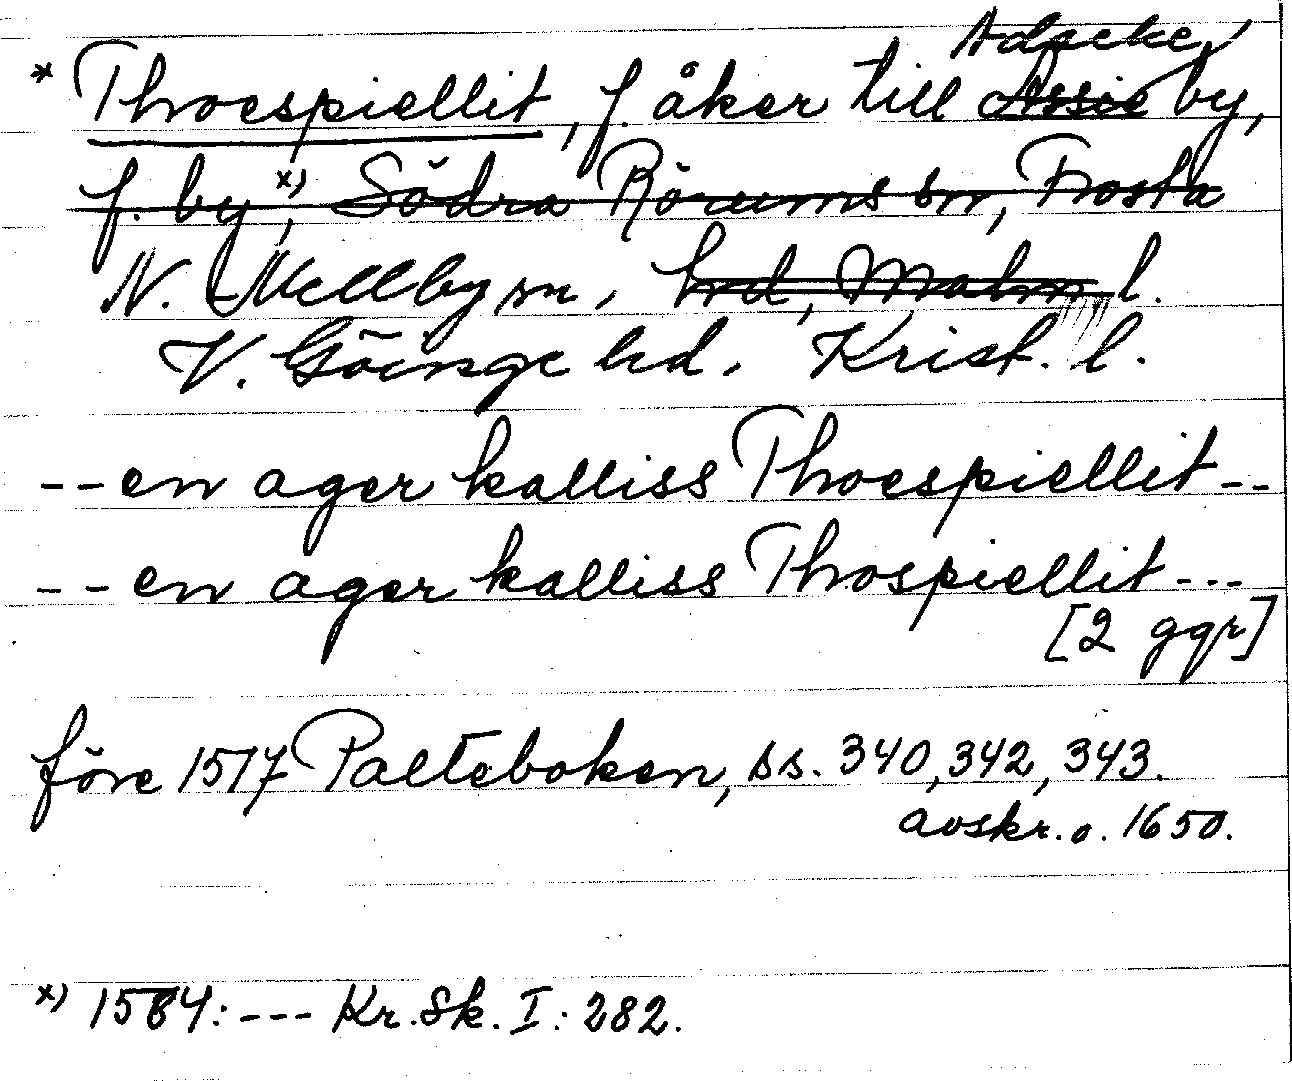 Adseke
* Thoespiellit, f. åker till Assie by,
f. by x), Södra Rörums sn, Frosta
N. Mellby sn, hd, Malm. l.
V. Göinge hd, Krist. l.
-- en ager kalliss Thoespiellit --
-- en ager kalliss Thospiellit ---
[2 ggr]
före 1517 Palteboken, ss. 340, 342, 343.
avskr. o. 1650.
x) 1584: --- Kr. Sk. I: 282.